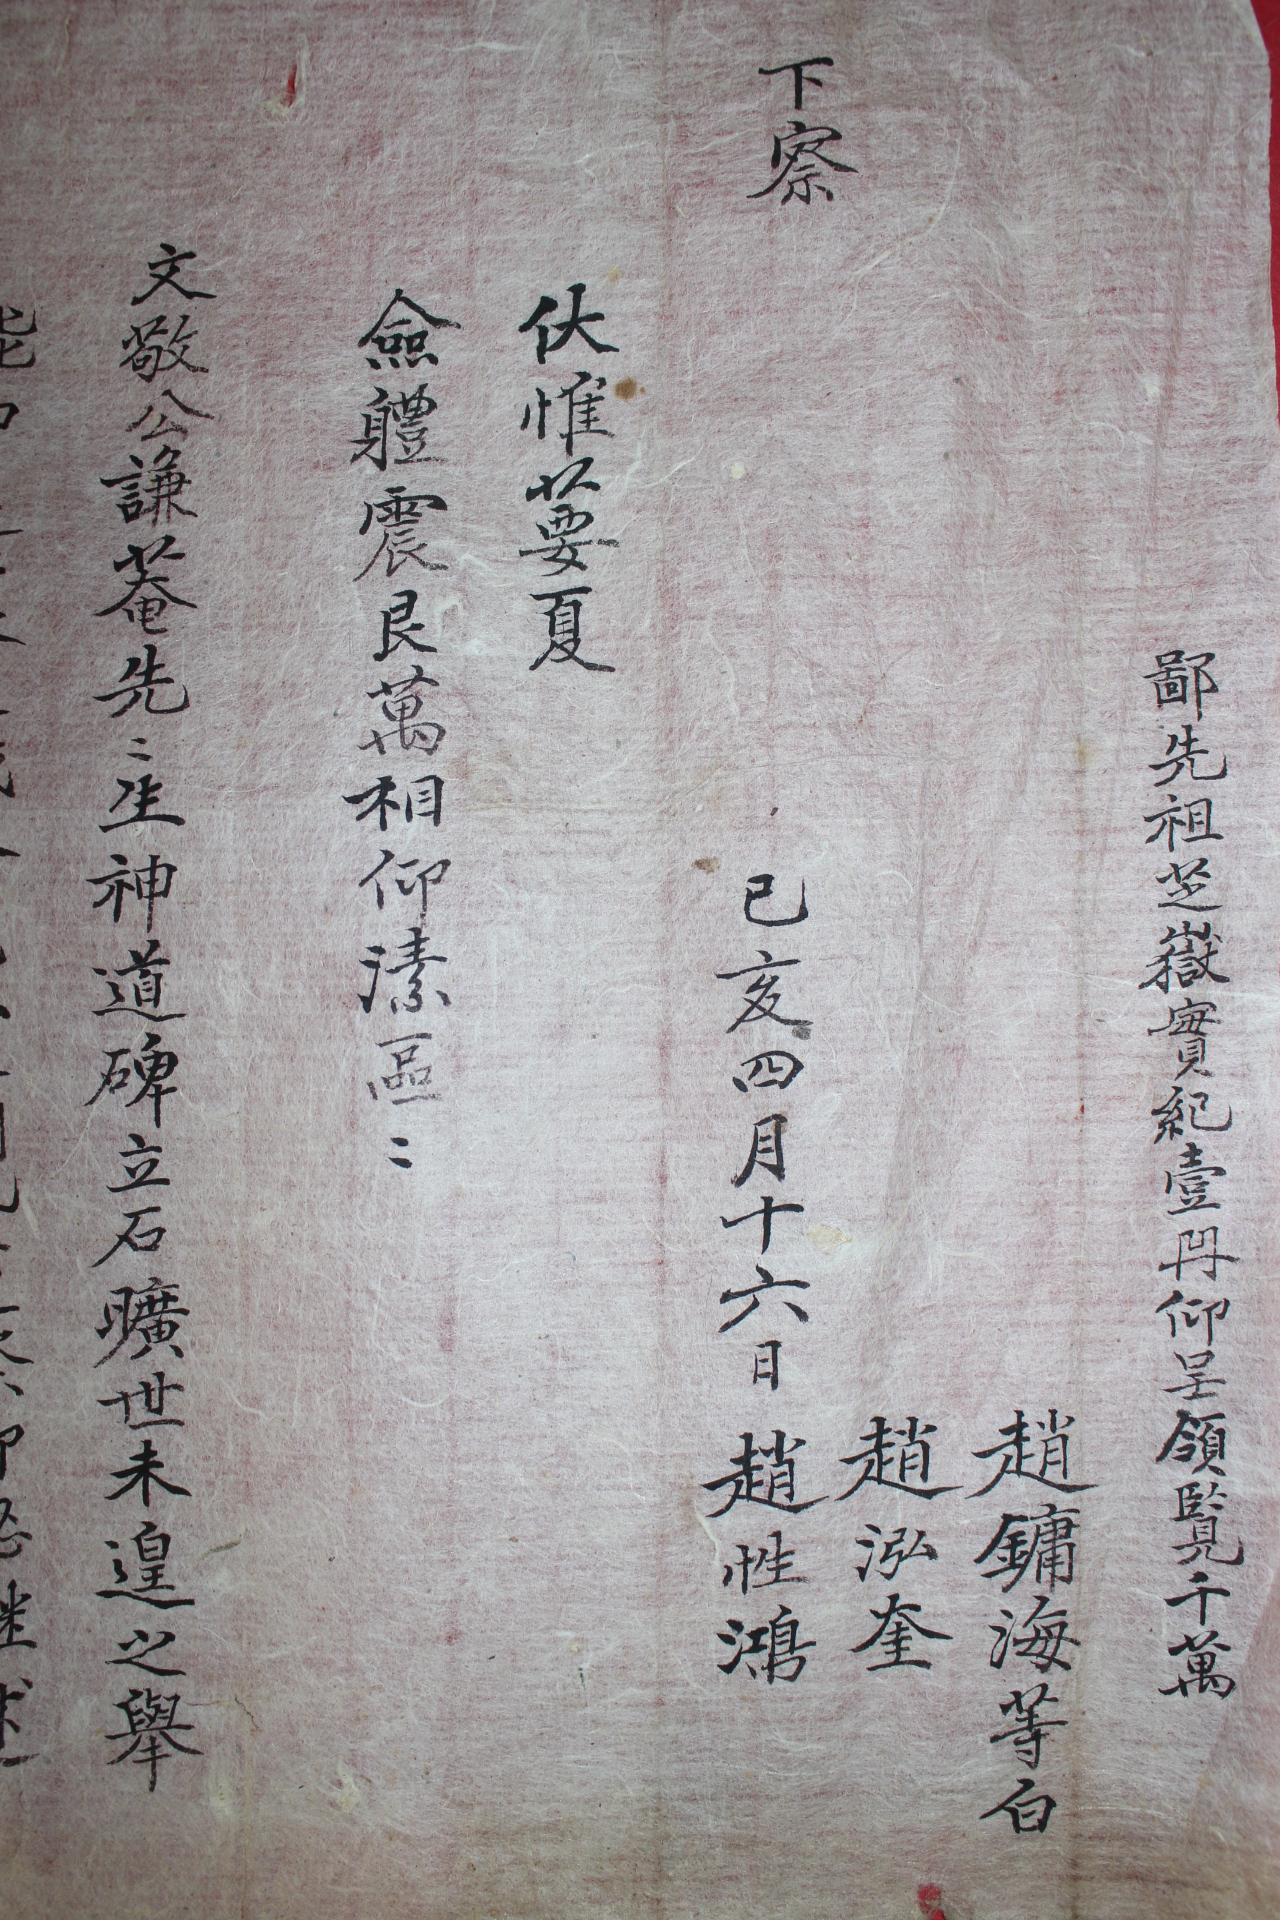 鄙先祖芝嶽實紀壹冊仰呈領覽千萬
趙鏞海等白
趙泓奎
下察
己亥四月十六日 趙性鴻
伏惟葽夏
僉軆震艮萬相仰溸區〻
文敬公謙菴先〻生神道碑立石曠世未遑之擧